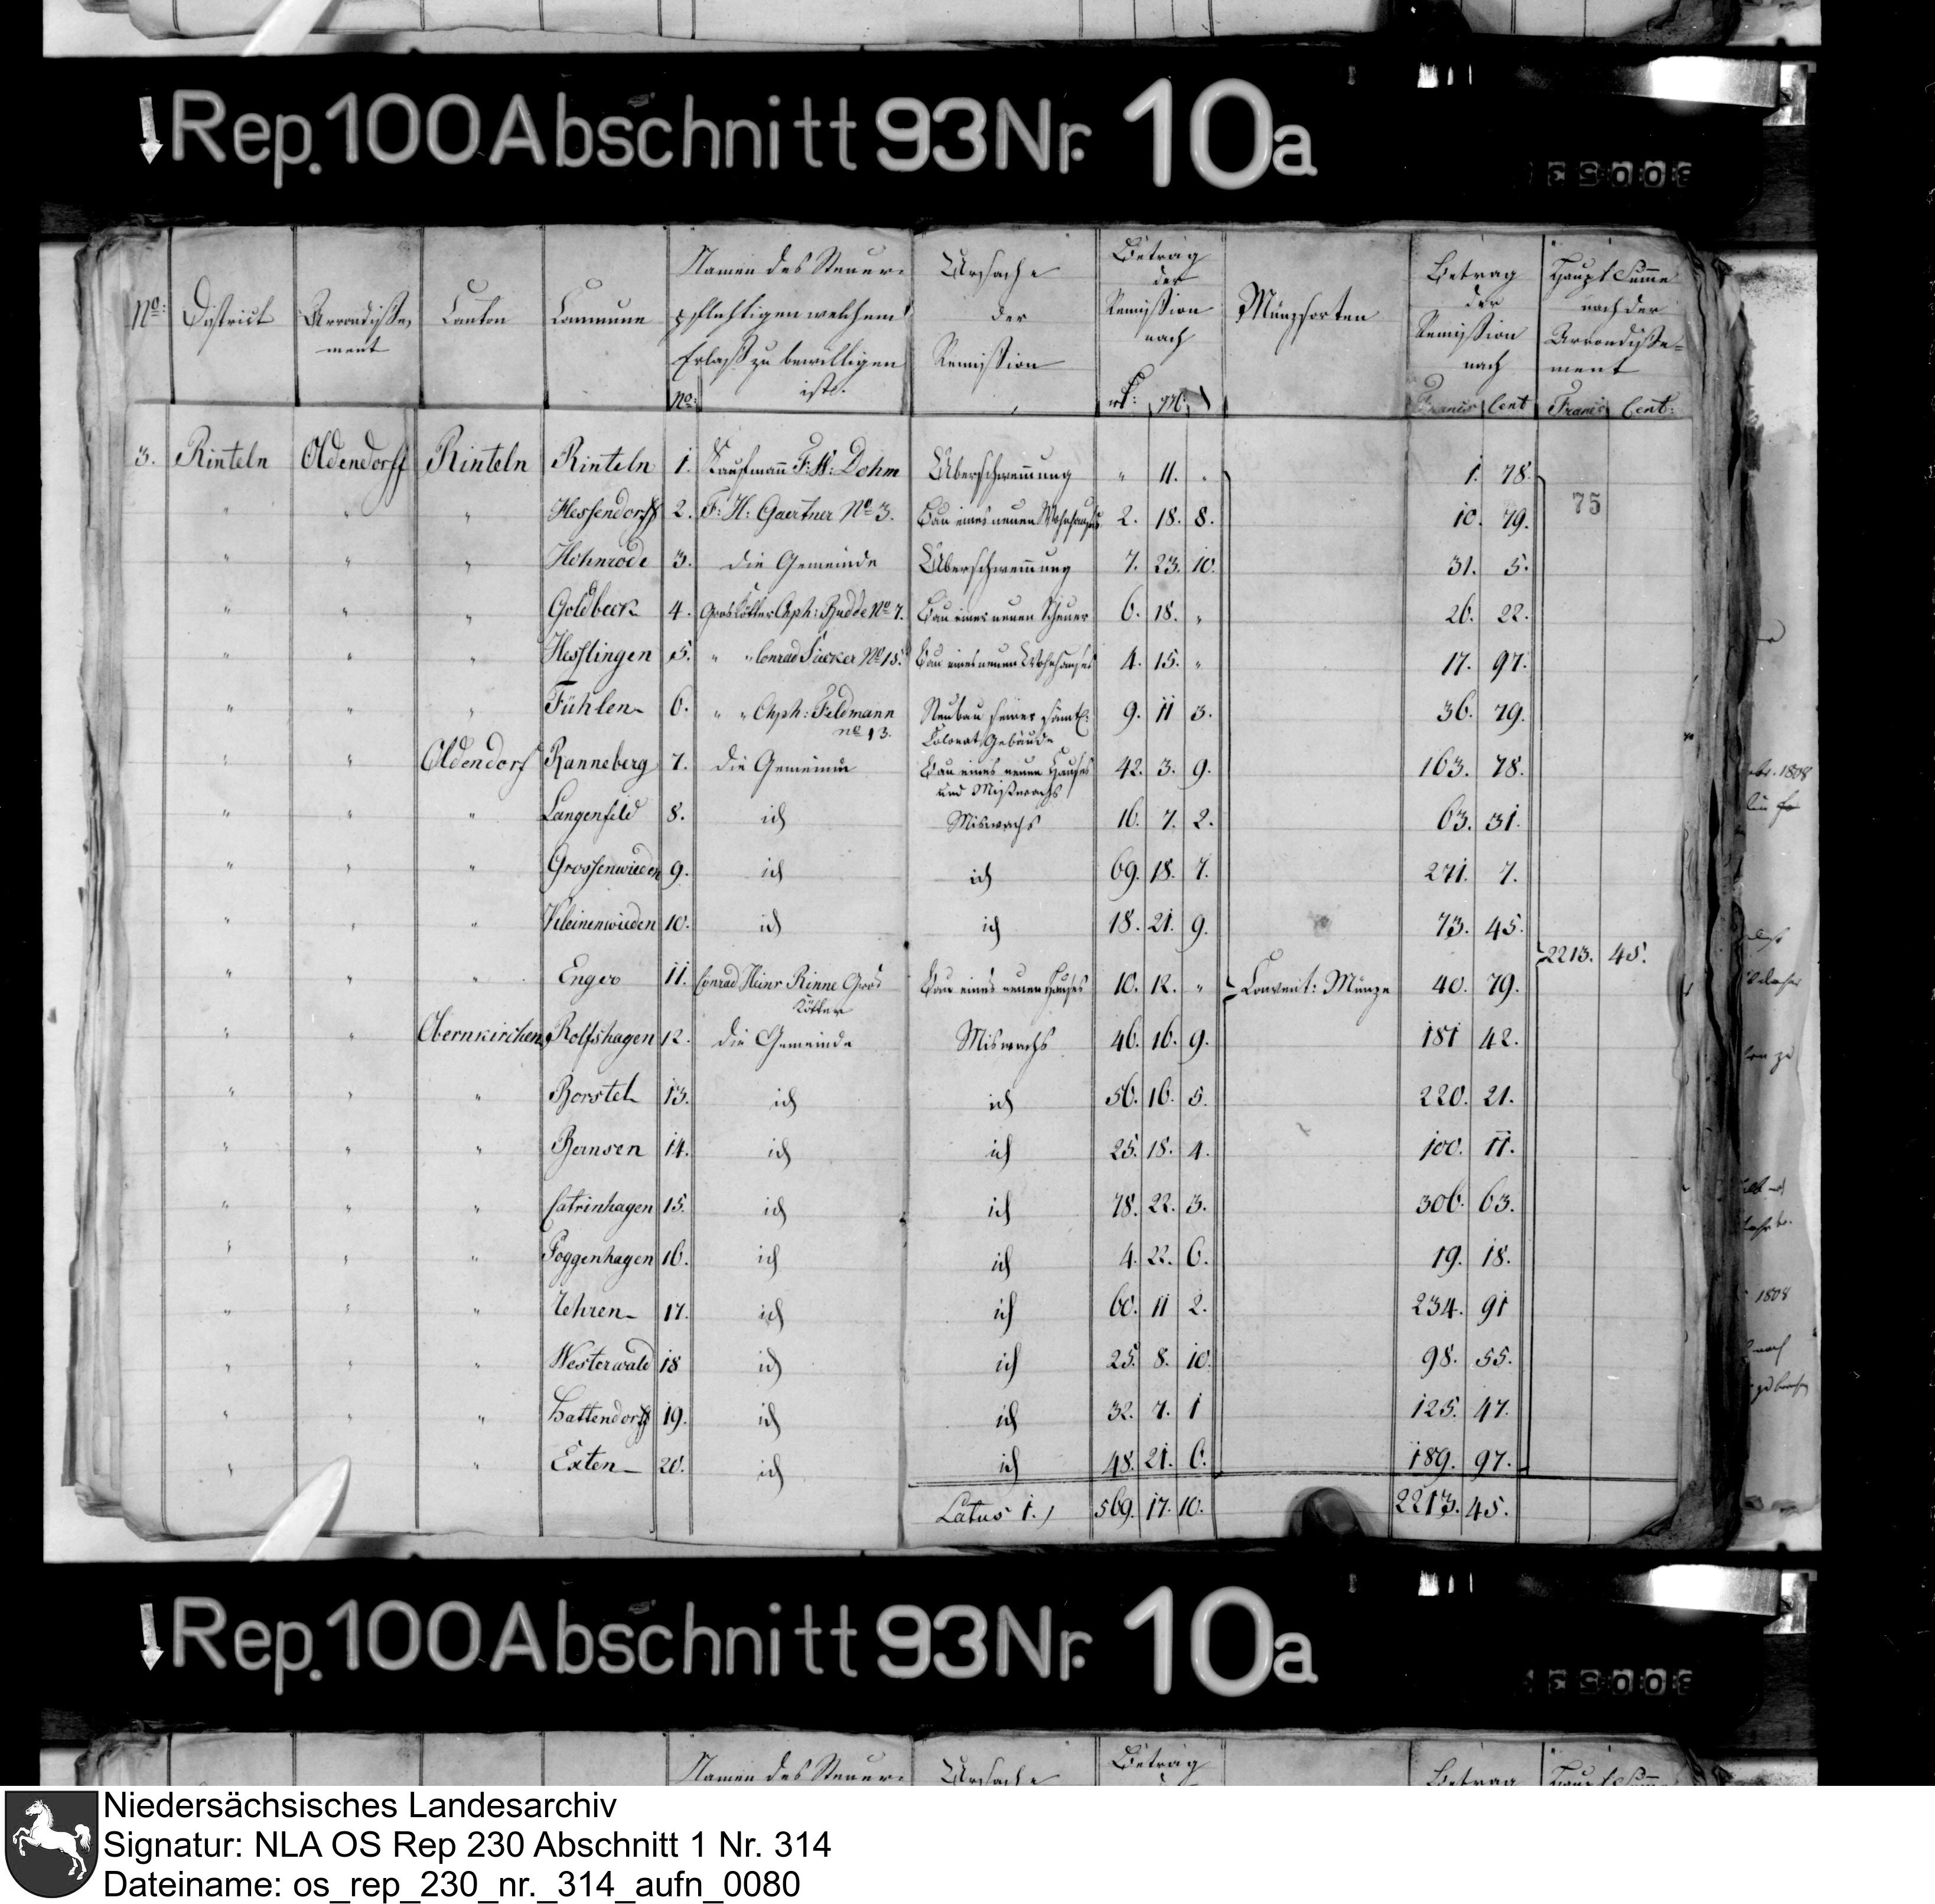 Rep. 100 Abschnitt 93 Nr. 10a
No: District Arrondisse- ment Canton Commune No: Namen des Steuer- pflichtigen welchem Erlaß zu bewilligen ist. Ursache der Remission Betrag der Remission nach Münzsorten Betrag der Remission nach Francs Cent Haupt Summe nach der Arrondisse- ment Francs Cent:
75
3. Rinteln Oldendorff Rinteln Rinteln 1. Kaufmann F: W: Dohm Überschwemung " 11. " 1. 78.
" " " Hessendorff 2. F: H: Gaertner No 3. Bau eines neuen Wohnhauses 2. 18. 8. 10. 79.
" " " Hohnrode 3. die Gemeinde Überschwemung 7. 23. 10. 31. 5.
" " " Goldbeck 4. Groskötter Chph: Budde No 7. Bau einer neuen Scheuer 6. 18. " 26. 22.
" " " Hesslingen 5. " " Conrad No 15. Bau eines neuen Wohnhauses 4. 15. " 17. 97.
" " " Fühlen 6. " " Chph: Feldmann no 13. Neubau seiner sämtl: Colonat Gebäude 9. 11 3. 36. 79.
" " Oldendorf Ranneberg 7. die Gemeinde Bau eines neuen Hauses und Mißwachs 42. 3. 9. 163. 78.
" " " Langenfeld 8. id Miswachs 16. 7. 2. 63. 31.
" " " Grossenwieden 9. id id 69. 18. 7. 271. 7.
" " " Kleinenwieden 10. id id 18. 21. 9. 73. 45.
2213. 45.
" " " Enger 11. Conrad Heinr Rinne Gros Kötter Bau eines neuen Hauses 10. 12. " Convent: Münze 40. 79.
" " Obernkirchen Rolfshagen 12. die Gemeinde Miswachs 46. 16. 9. 181 42.
" " " Borstel 13. id id 56. 16. 5. 220. 21.
" " " Bernsen 14. id id 25. 18. 4. 100. 11.
" " " Catrinhagen 15. id id 78. 22. 3. 306. 63.
" " " Poggenhagen 16. id id 4. 22. 6. 19. 18.
" " " Rehren 17. id id 60. 11 2. 234. 91
" " " Westerwald 18 id id 25. 8. 10. 98. 55.
" " " Hattendorff 19. id id 32. 7. 1 125. 47.
" " " Exten 20. id id 48. 21. 6. 189. 97.
Latus 1.) 569. 17. 10. 2213. 45.
Rep. 100 Abschnitt 93 Nr. 10a
Namen des Steuer- Ursache Betrag Betrag Haupt Summe
Niedersächsisches Landesarchiv
Signatur: NLA OS Rep 230 Abschnitt 1 Nr. 314
Dateiname: os_rep_230_nr._314_aufn_0080